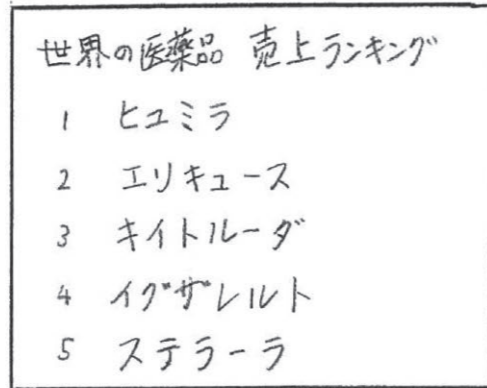 世界の医薬品 売上ランキング
1 ヒュミラ
2 エリキュース
3 キイトルーダ
4 イグザレルト
5 ステラーラ